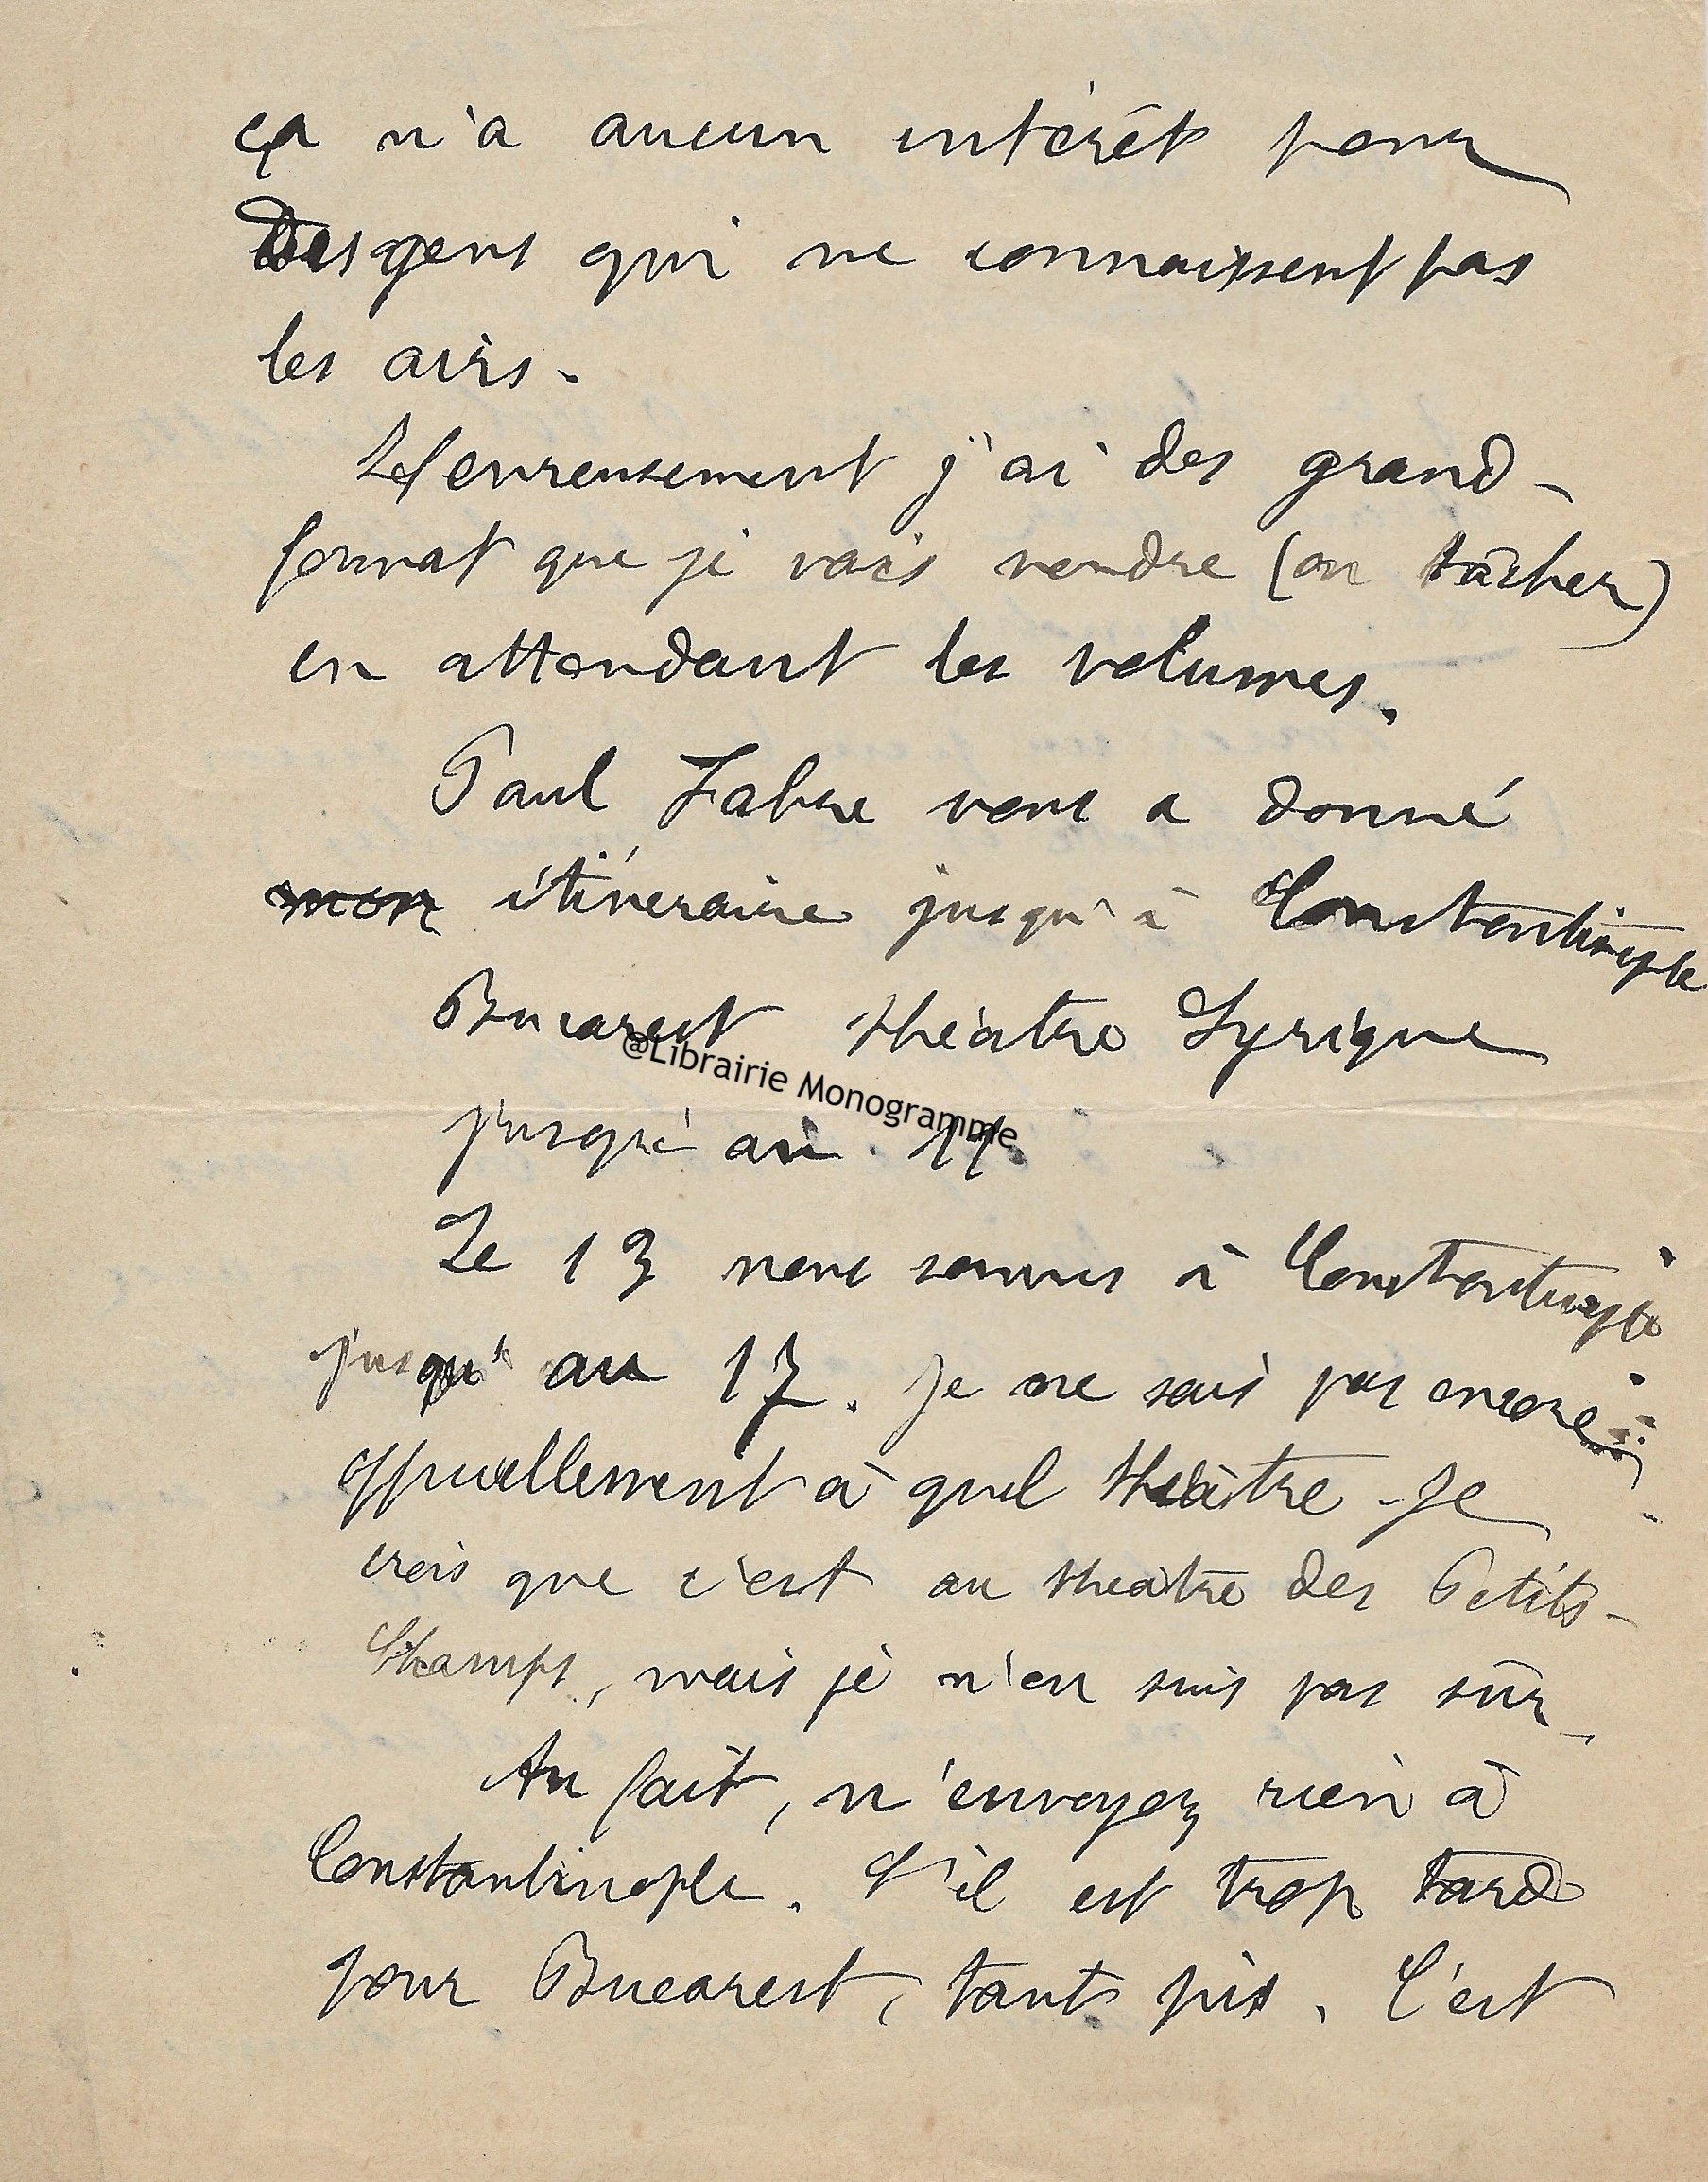 ça n'a aucun intérêt pour
des gens qui ne connaissent pas
les airs.
Heureusement j'ai des grand-
format que je vais vendre (ou tâcher)
en attendant les volumes.
Paul Fabre vous a donné
mon itinéraire jusqu'à Constantinople
Bucarest théâtre Lyrique
@Librairie Monogramme
jusqu'au 11.
Le 13 nous sommes à Constantinople
jusqu'au 17. Je ne sais pas encore
officiellement à quel théâtre. Je
crois que c'est au theatre des Petits-
Champs, mais je n'en suis pas sûr.
Au fait, n'envoyez rien à
Constantinople. S'il est trop tard
pour Bucarest, tant pis. C'est